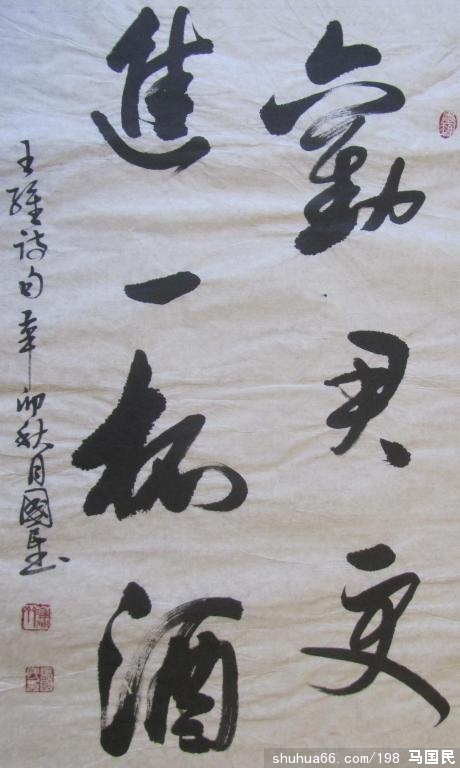 勸君更
進一杯酒
王維詩句辛卯秋月國民书
shuhua66.com/198 马国民